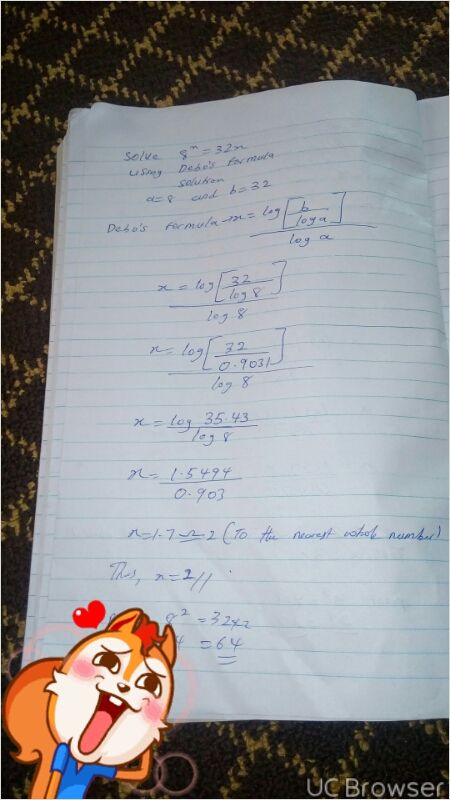 Solve 8ˣ = 32x
using Debo's formula
solution
a=8 and b=32
Debo's formula x = log[b/log a]/log a
x = log[32/log 8]/log 8
x = log[32/0.9031]/log 8
x = log 35.43/log 8
x = 1.5494/0.903
x=1.7 ≃ 2 (To the nearest whole number)
Thus, x=2//
8² = 32×2
4 = 64
UC Browser